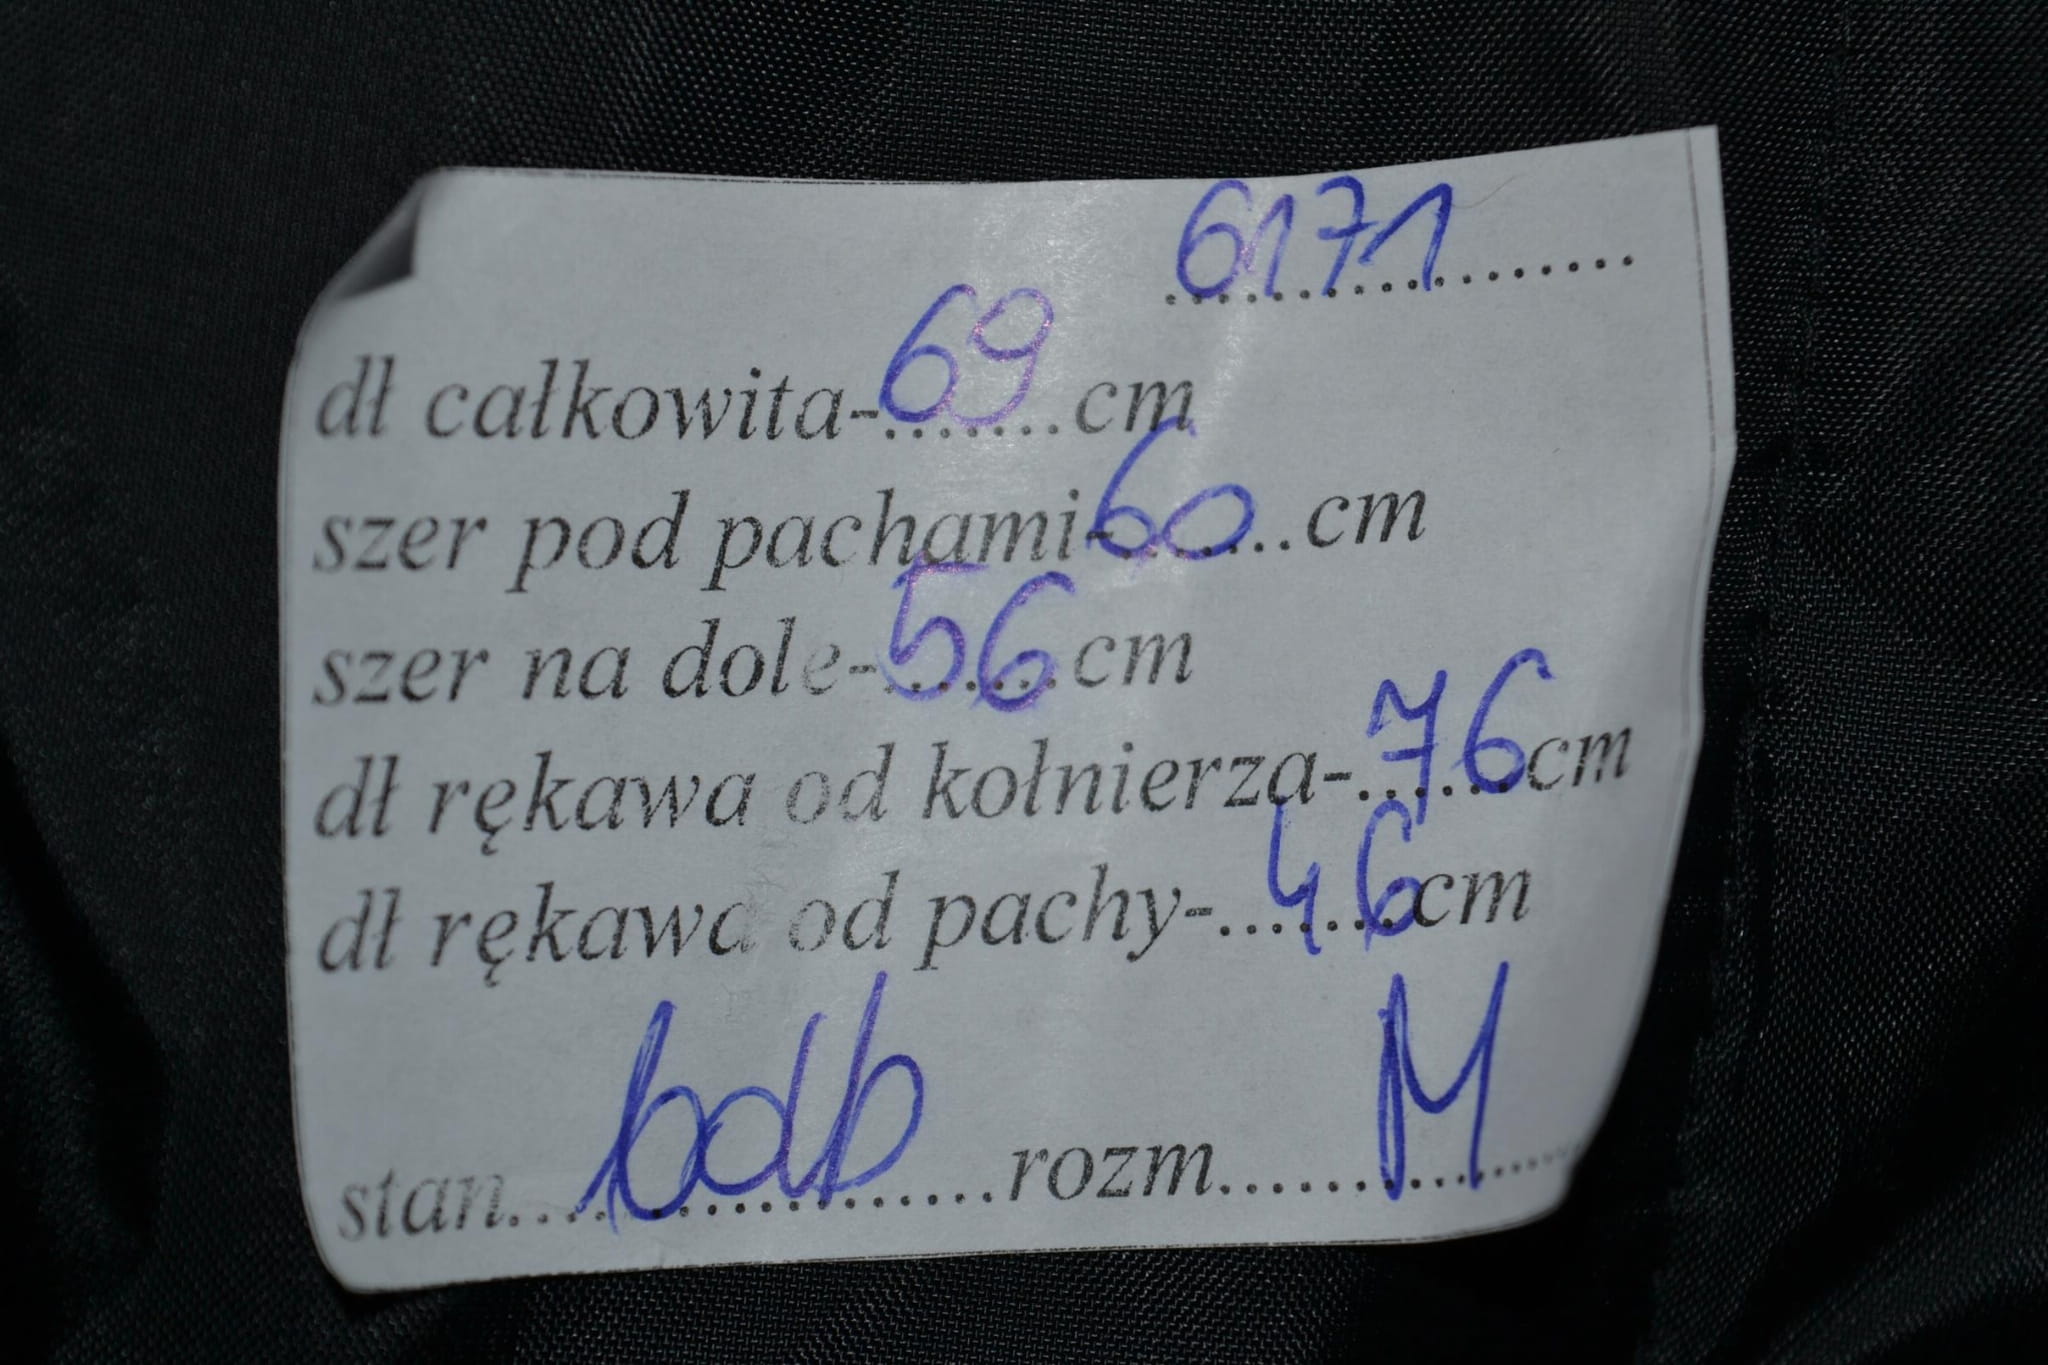 6171
dł całkowita-69.......cm
szer pod pachami-60.......cm
szer na dole-56.......cm
dł rękawa od kołnierza-76.......cm
dł rękawa od pachy-46.......cm
stan...bdb...rozm...M...